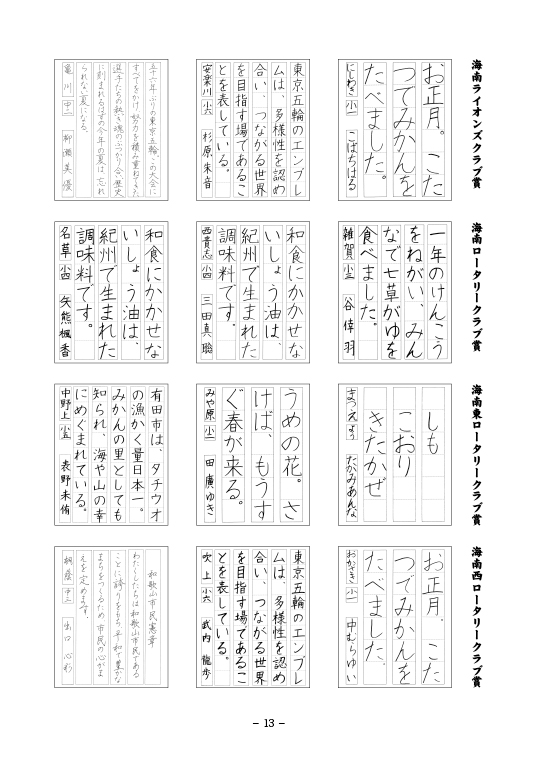 海南ライオンズクラブ賞
お正月。こた
つでみかんを
たべました。
にしわき 小一 こばちはる
東京五輪のエンブレ
ムは、多様性を認め
合い、つながる世界
を目指す場であるこ
とを表している。
安楽川 小六 杉原朱音
五十六年ぶりの東京五輪。この大会に
すべてをかけ、努力を積み重ねてきた
選手たちの熱き魂のぶつかり合い。歴史
に刻まれるはずの今年の夏は、忘れ
られない夏になる。
亀川 中二 柳瀬美優
海南ロータリークラブ賞
一年のけんこう
をねがい、みん
なで七草がゆを
食べました。
雑賀 小三 谷倖羽
和食にかかせな
いしょう油は、
紀州で生まれた
調味料です。
西貴志 小四 三田真聡
和食にかかせな
いしょう油は、
紀州で生まれた
調味料です。
名草 小四 矢熊楓香
海南東ロータリークラブ賞
しも
こおり
きたかぜ
まつえ よう たがみあんな
うめの花。さ
けば、もうす
ぐ春が来る。
みや原 小二 田廣ゆき
有田市は、タチウオ
の漁かく量日本一。
みかんの里としても
知られ、海や山の幸
にめぐまれている。
中野上 小五 表野未侑
海南西ロータリークラブ賞
お正月。こた
つでみかんを
たべました。
おかざき 小一 中むらゆい
東京五輪のエンブレ
ムは、多様性を認め
合い、つながる世界
を目指す場であるこ
とを表している。
吹上 小六 武内龍歩
和歌山市民憲章
わたくしたちは和歌山市民である
ことに誇りをもち平和で豊かな
まちをつくるため 市民の心がま
えを定めます。
桐蔭 中二 出口心わ
− 13 −